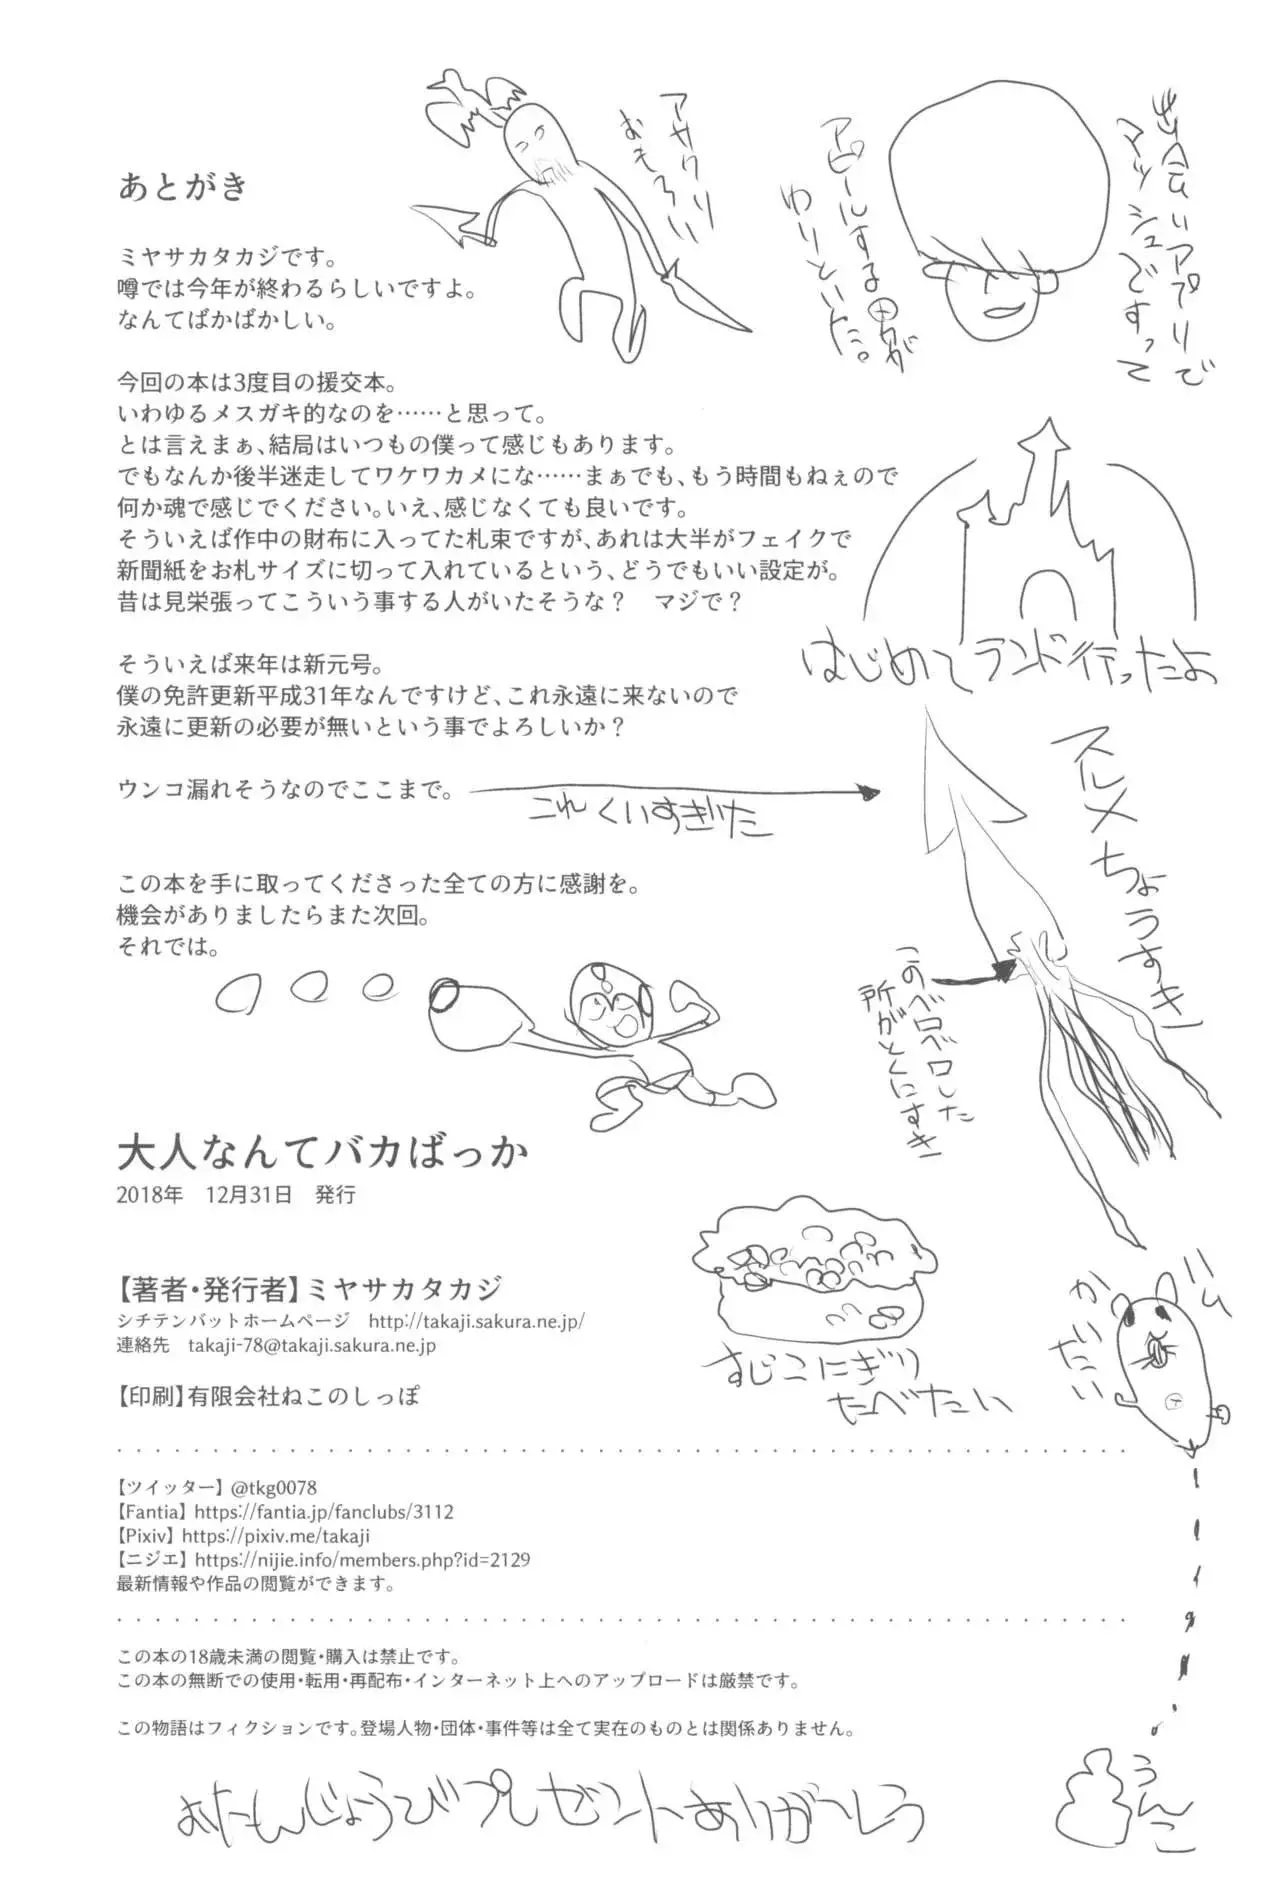 あとがき
ミヤサカタカジです。
噂では今年が終わるらしいですよ。
なんてばかばかしい。
今回の本は3度目の援交本。
いわゆるメスガキ的なのを……と思って。
とは言えまぁ、結局はいつもの僕って感じもあります。
でもなんか後半迷走してワケワカメにな……まぁでも、もう時間もねぇので
何か魂で感じでください。いえ、感じなくても良いです。
そういえば作中の財布に入ってた札束ですが、あれは大半がフェイクで
新聞紙をお札サイズに切って入れているという、どうでもいい設定が。
昔は見栄張ってこういう事する人がいたそうな？　マジで？
そういえば来年は新元号。
僕の免許更新平成31年なんですけど、これ永遠に来ないので
永遠に更新の必要が無いという事でよろしいか？
ウンコ漏れそうなのでここまで。
これくいすぎた
この本を手に取ってくださった全ての方に感謝を。
機会がありましたらまた次回。
それでは。
アサクリ
おもろい
出会いアプリで
マッシュですって
アピールする男が
わりといた。
はじめてランド行ったよ
スルメちょうすき
このベロベロした
所がとくにすき
すじこにぎり
たべたい
ハム
かいたい
うんこ
大人なんてバカばっか
2018年　12月31日　発行
【著者・発行者】ミヤサカタカジ
シチテンバットホームページ　http://takaji.sakura.ne.jp/
連絡先　takaji-78@takaji.sakura.ne.jp
【印刷】有限会社ねこのしっぽ
【ツイッター】@tkg0078
【Fantia】https://fantia.jp/fanclubs/3112
【Pixiv】https://pixiv.me/takaji
【ニジエ】https://nijie.info/members.php?id=2129
最新情報や作品の閲覧ができます。
この本の18歳未満の閲覧・購入は禁止です。
この本の無断での使用・転用・再配布・インターネット上へのアップロードは厳禁です。
この物語はフィクションです。登場人物・団体・事件等は全て実在のものとは関係ありません。
おたんじょうびプレゼントありがとう